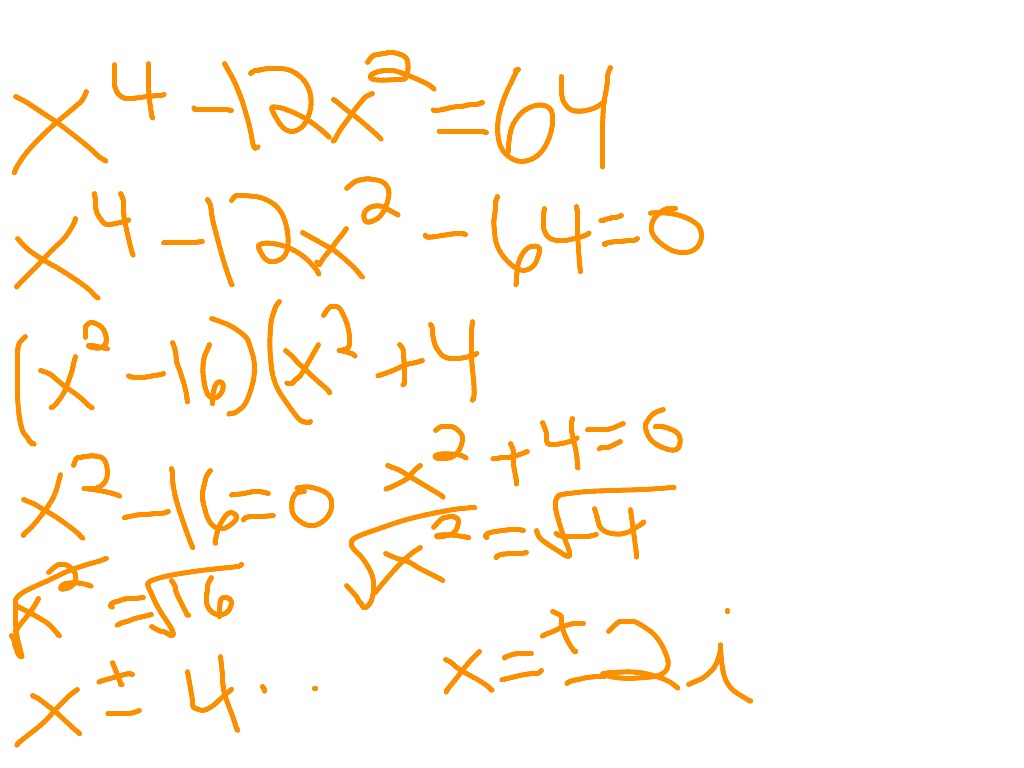 x⁴ - 12x² = 64
x⁴ - 12x² - 64 = 0
(x² - 16)(x² + 4
x² + 4 = 0
x² - 16 = 0
√x² = √-4
√x² = √16
x ± 4
x = ±2i